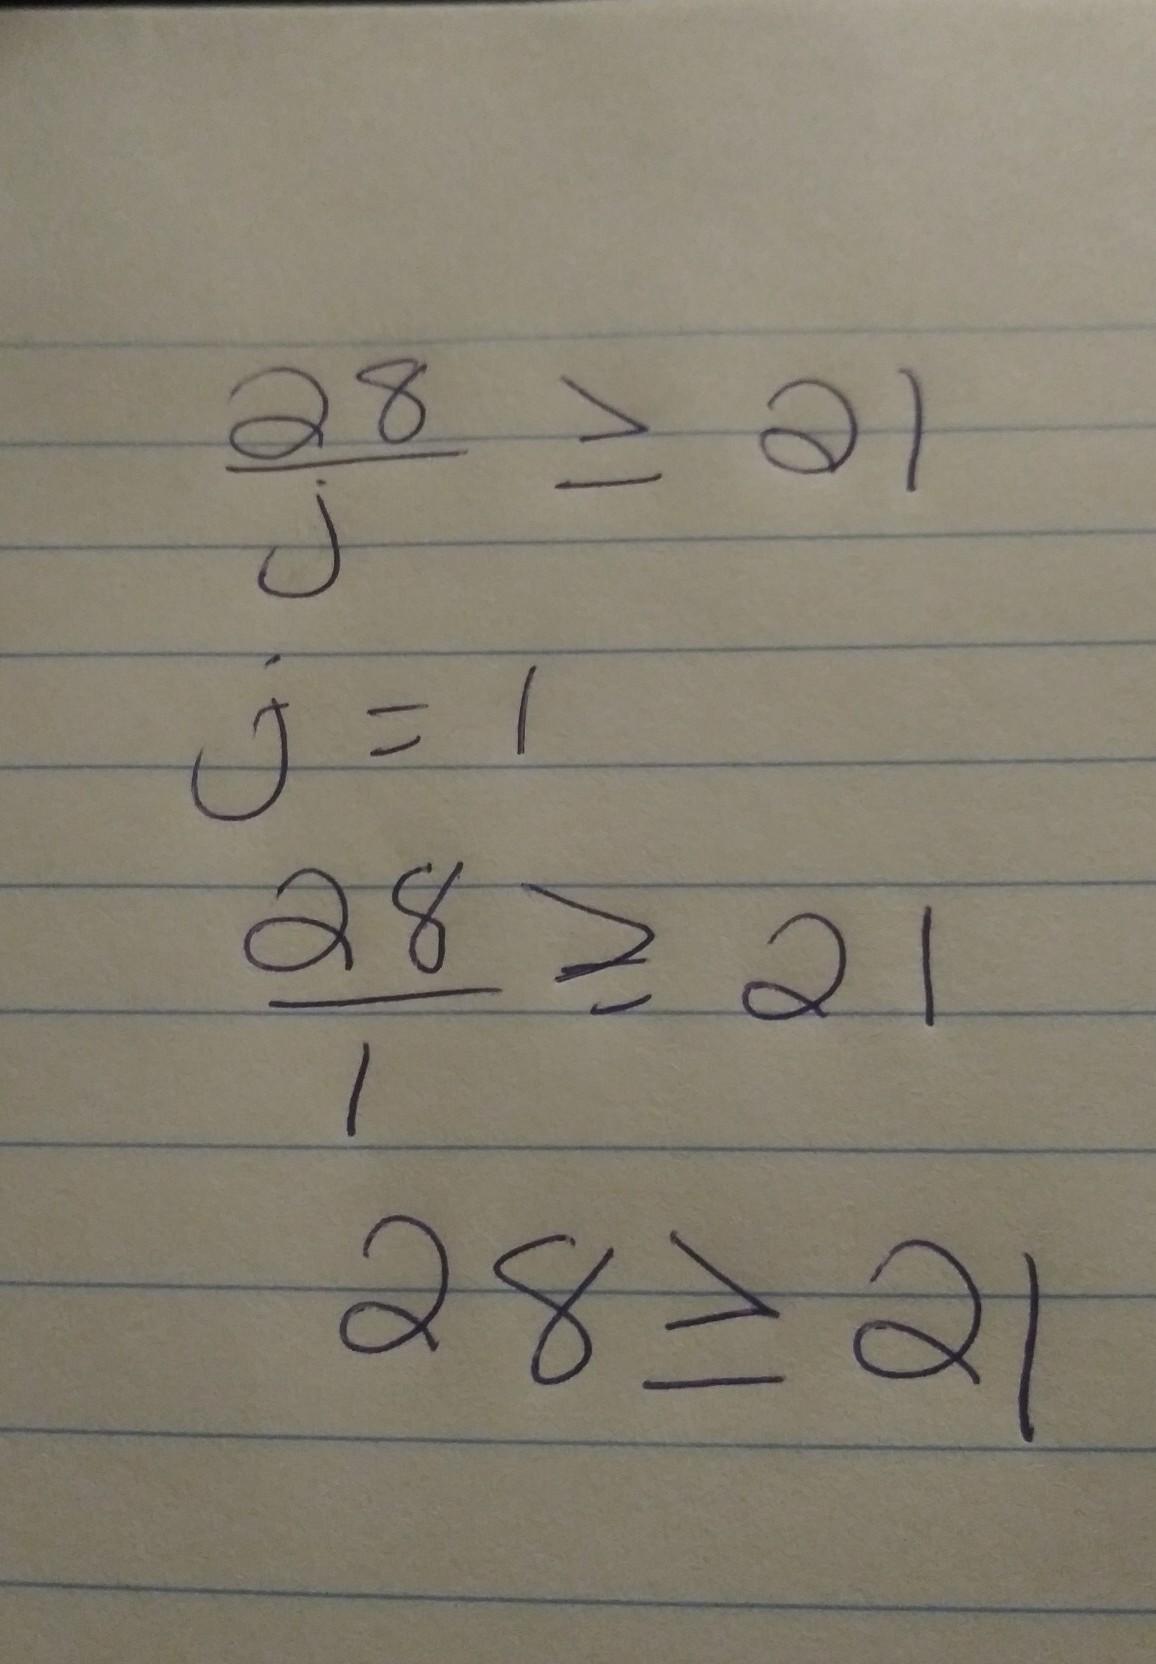 28/j ≥ 21
j = 1
28/1 ≥ 21
28 ≥ 21